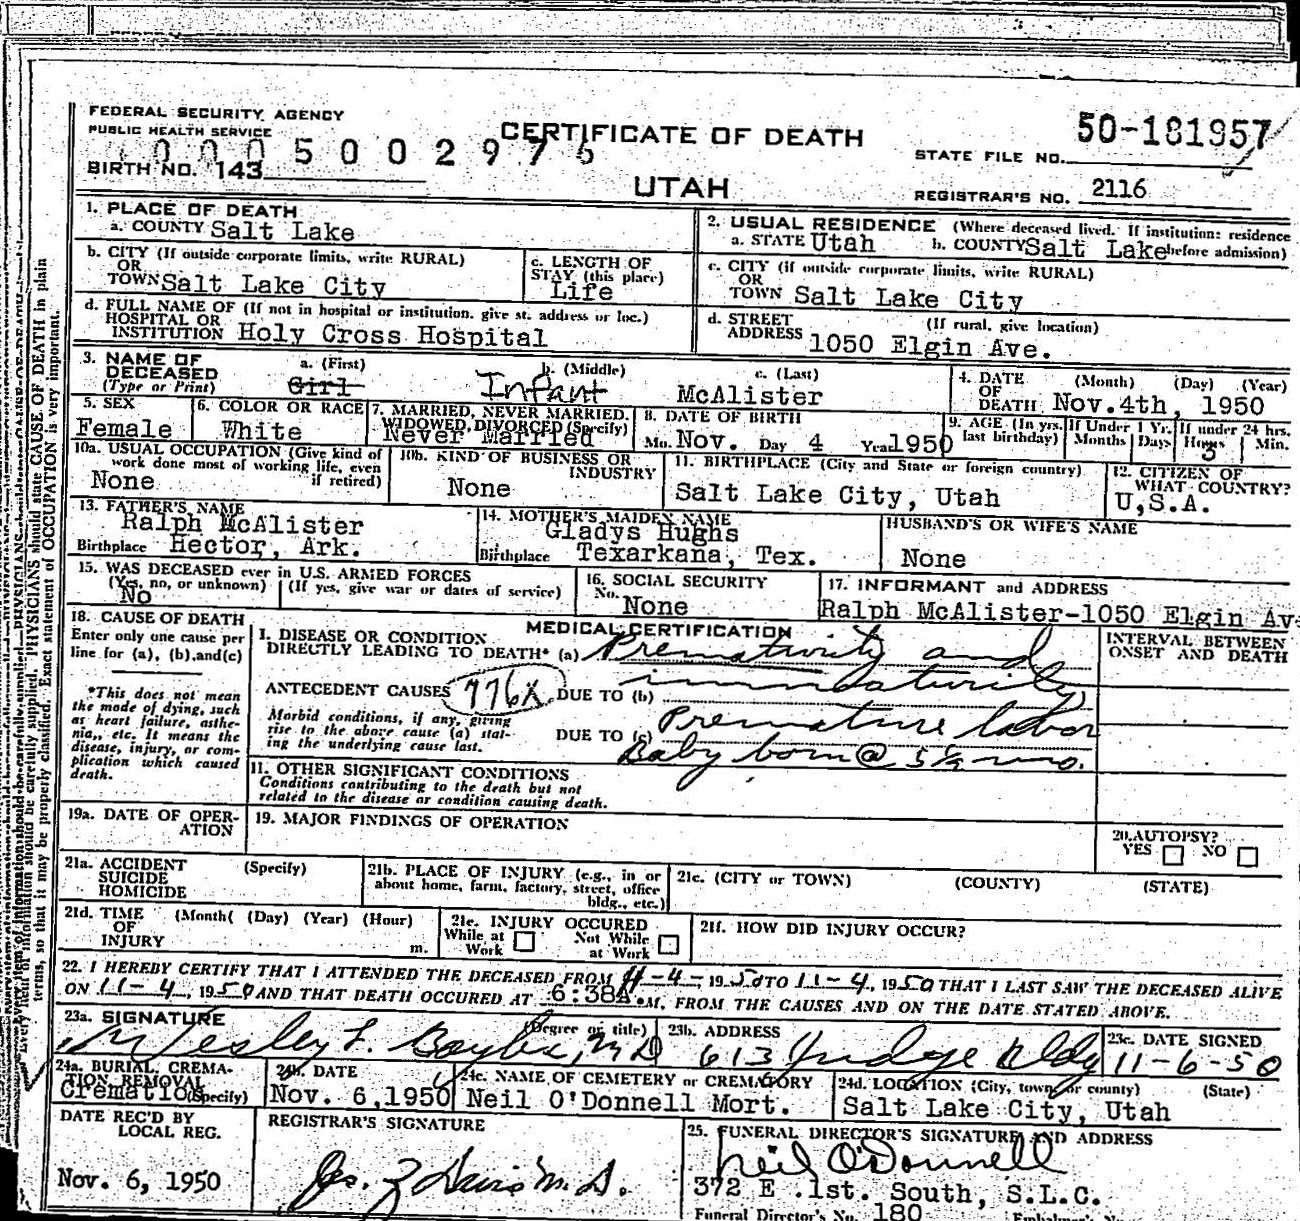 FEDERAL SECURITY AGENCY
PUBLIC HEALTH SERVICE
CERTIFICATE OF DEATH
UTAH
BIRTH NO. 143
STATE FILE NO. 50-181957
REGISTRAR'S NO. 2116
1. PLACE OF DEATH
a. COUNTY Salt Lake
b. CITY (If outside corporate limits, write RURAL)
OR
TOWN Salt Lake City
c. LENGTH OF
STAY (this place)
Life
d. FULL NAME OF (If not in hospital or institution, give st. address or loc.)
HOSPITAL OR
INSTITUTION Holy Cross Hospital
2. USUAL RESIDENCE (Where deceased lived. If institution: residence
a. STATE Utah b. COUNTY Salt Lake before admission)
c. CITY (if outside corporate limits, write RURAL)
OR
TOWN Salt Lake City
d. STREET (If rural, give location)
ADDRESS 1050 Elgin Ave.
3. NAME OF
DECEASED
(Type or Print)
a. (First) b. (Middle) c. (Last)
Girl Infant McAlister
4. DATE (Month) (Day) (Year)
OF
DEATH Nov.4th, 1950
5. SEX
Female
6. COLOR OR RACE
White
7. MARRIED, NEVER MARRIED,
WIDOWED, DIVORCED (Specify)
Never Married
8. DATE OF BIRTH
Mo. Nov. Day 4 Year 1950
9. AGE (In yrs. last birthday)
If Under 1 Yr. If under 24 hrs.
Months Days Hours Min.
3
10a. USUAL OCCUPATION (Give kind of
work done most of working life, even
if retired)
None
10b. KIND OF BUSINESS OR
INDUSTRY
None
11. BIRTHPLACE (City and State or foreign country)
Salt Lake City, Utah
12. CITIZEN OF
WHAT COUNTRY?
U,S.A.
13. FATHER'S NAME
Ralph McAlister
Birthplace Hector, Ark.
14. MOTHER'S MAIDEN NAME
Gladys Hughs
Birthplace Texarkana, Tex.
HUSBAND'S OR WIFE'S NAME
None
15. WAS DECEASED ever in U.S. ARMED FORCES
(Yes, no, or unknown) (If yes, give war or dates of service)
No
16. SOCIAL SECURITY
No.
None
17. INFORMANT and ADDRESS
Ralph McAlister-1050 Elgin Av
18. CAUSE OF DEATH
Enter only one cause per
line for (a), (b),and(c)
*This does not mean
the mode of dying, such
as heart failure, asthe-
nia,, etc. It means the
disease, injury, or com-
plication which caused
death.
MEDICAL CERTIFICATION
I. DISEASE OR CONDITION
DIRECTLY LEADING TO DEATH* (a) Prematurity and
ANTECEDENT CAUSES 776X DUE TO (b) immaturity
Morbid conditions, if any, giving
rise to the above cause (a) stat-
ing the underlying cause last.
DUE TO (c) Premature labor
Baby born @ 5½ mo.
INTERVAL BETWEEN
ONSET AND DEATH
11. OTHER SIGNIFICANT CONDITIONS
Conditions contributing to the death but not
related to the disease or condition causing death.
19a. DATE OF OPER-
ATION
19. MAJOR FINDINGS OF OPERATION
20.AUTOPSY?
YES NO
21a. ACCIDENT (Specify)
SUICIDE
HOMICIDE
21b. PLACE OF INJURY (e.g., in or
about home, farm, factory, street, office
bldg., etc.)
21c. (CITY or TOWN) (COUNTY) (STATE)
21d. TIME (Month( (Day) (Year) (Hour)
OF
INJURY m.
21e. INJURY OCCURED
While at Work Not While at Work
21f. HOW DID INJURY OCCUR?
22. I HEREBY CERTIFY THAT I ATTENDED THE DECEASED FROM 11-4-, 1950 TO 11-4, 1950 THAT I LAST SAW THE DECEASED ALIVE
ON 11-4, 1950 AND THAT DEATH OCCURED AT 6:38A.M, FROM THE CAUSES AND ON THE DATE STATED ABOVE.
23a. SIGNATURE (Degree or title)
Wesley F. MD
23b. ADDRESS
613 Judge Bldg
23c. DATE SIGNED
11-6-50
24a. BURIAL, CREMA-
TION, REMOVAL
(Specify)
Cremation
24b. DATE
Nov. 6,1950
24c. NAME OF CEMETERY or CREMATORY
Neil O'Donnell Mort.
24d. LOCATION (City, town, or county) (State)
Salt Lake City, Utah
DATE REC'D BY
LOCAL REG.
Nov. 6, 1950
REGISTRAR'S SIGNATURE
M.D.
25. FUNERAL DIRECTOR'S SIGNATURE AND ADDRESS
Neil O'Donnell
372 E .1st. South, S.L.C.
Funeral Director's No. 180